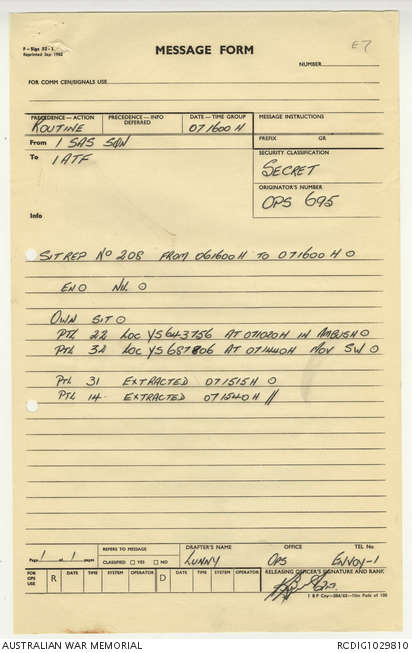 F—Sigs 52-1
Reprinted Sep 1962
MESSAGE FORM
E7
NUMBER
FOR COMM CEN/SIGNALS USE
PRECEDENCE—ACTION PRECEDENCE—INFO DATE—TIME GROUP MESSAGE INSTRUCTIONS
ROUTINE DEFERRED 071600H
PREFIX GR
From 1 SAS SQN
To 1 ATF
SECURITY CLASSIFICATION
SECRET
ORIGINATOR'S NUMBER
OPS 695
Info
SITREP Nº 208 FROM 061600H TO 071600H O
EN O NIL O
OWN SIT O
PTL 22 LOC YS643756 AT 071020H IN AMBUSH O
PTL 32 LOC YS687806 AT 071440H MOV SW O
PTL 31 EXTRACTED 071515H O
PTL 14 EXTRACTED 071540H //
Page 1 of 1 pages
REFERS TO MESSAGE
CLASSIFIED YES NO
DRAFTER'S NAME OFFICE TEL No
LUNNY OPS ENVOY-1
FOR OPS USE R DATE TIME SYSTEM OPERATOR D DATE TIME SYSTEM OPERATOR RELEASING OFFICER'S SIGNATURE AND RANK
AUSTRALIAN WAR MEMORIAL RCDIG1029810